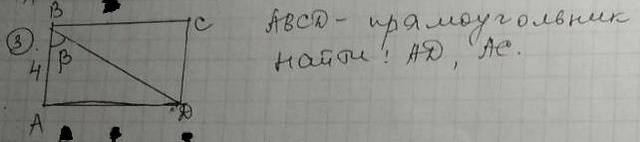 B
C
ABCD - прямоугольник
3.
4
β
Найти: AD, AC.
A
D